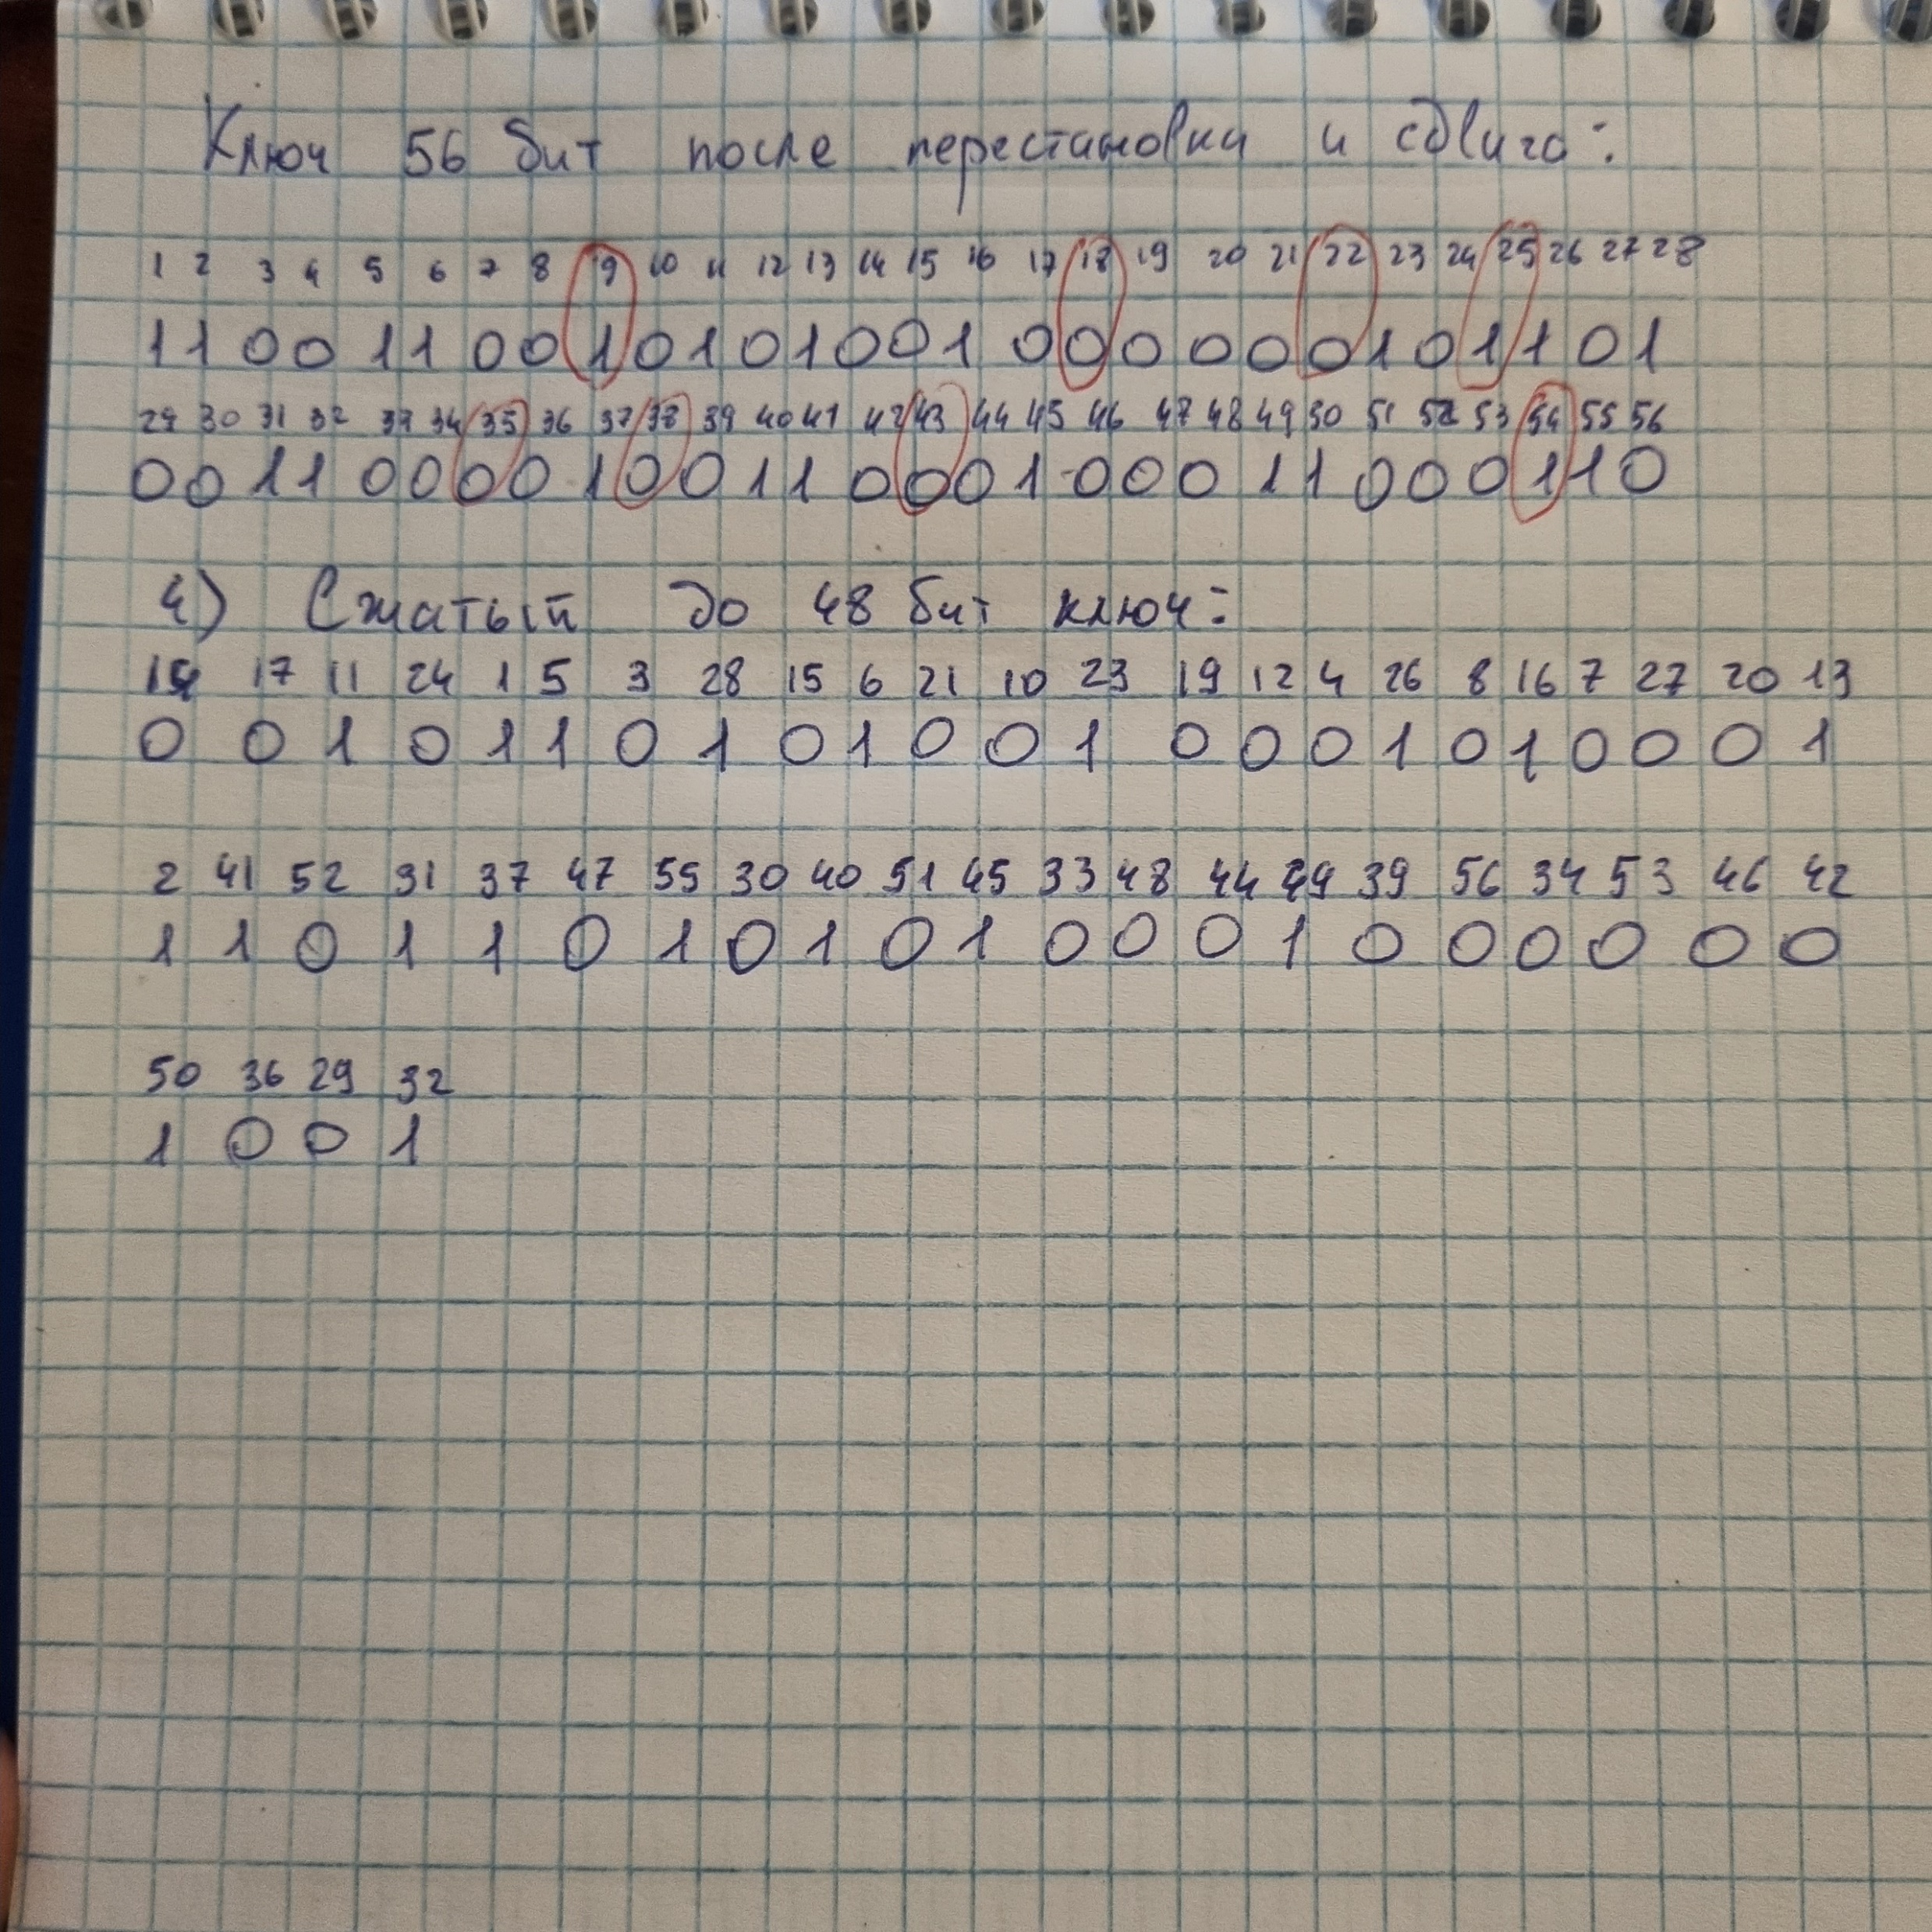 Ключ 56 бит после перестановки и сдвига:
1 2 3 4 5 6 7 8 9 10 11 12 13 14 15 16 17 18 19 20 21 22 23 24 25 26 27 28
1 1 0 0 1 1 0 0 1 0 1 0 1 0 0 1 0 0 0 0 0 0 1 0 1 1 0 1
29 30 31 32 33 34 35 36 37 38 39 40 41 42 43 44 45 46 47 48 49 50 51 52 53 54 55 56
0 0 1 1 0 0 0 0 1 0 0 1 1 0 0 0 1 0 0 0 1 1 0 0 0 1 1 0
4) Сжатый до 48 бит ключ:
14 17 11 24 1 5 3 28 15 6 21 10 23 19 12 4 26 8 16 7 27 20 13
0 0 1 0 1 1 0 1 0 1 0 0 1 0 0 0 1 0 1 0 0 0 1
2 41 52 31 37 47 55 30 40 51 45 33 48 44 49 39 56 34 53 46 42
1 1 0 1 1 0 1 0 1 0 1 0 0 0 1 0 0 0 0 0 0
50 36 29 32
1 0 0 1